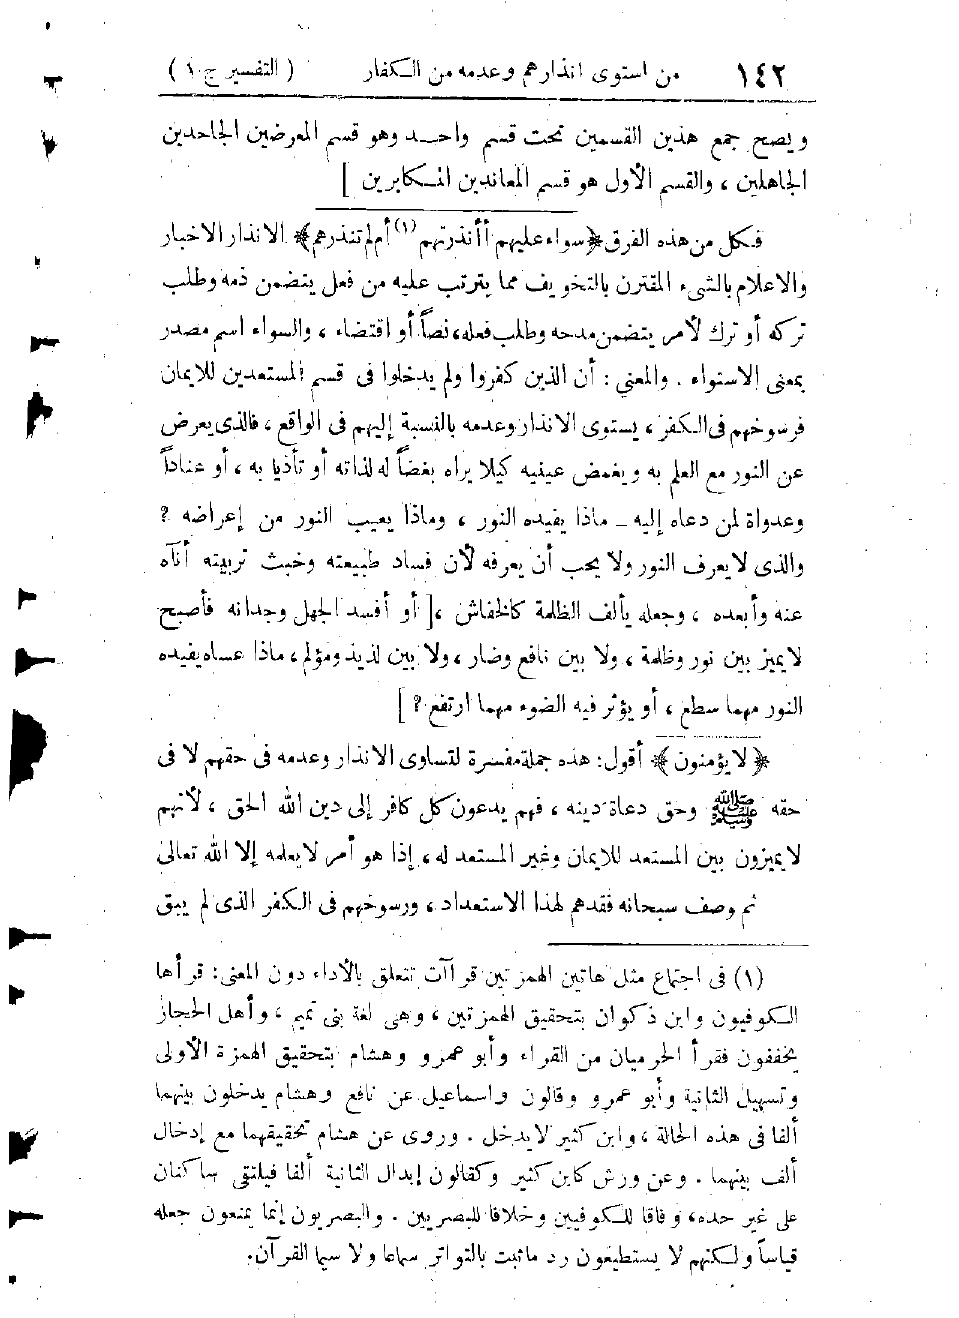 ١٤٢ من استوى انذارهم وعدمه من الكفار ( التفسير ج ١ )
ويصح جمع هذين القسمين تحت قسم واحد وهو قسم المعرضين الجاحدين
الجاهلين ، والقسم الأول هو قسم المعاندين المكابرين ]
فكل من هذه الفرق ﴿ سواء عليهم أأنذرتهم (١) أم لم تنذرهم ﴾ الانذار الاخبار
والاعلام بالشيء المقترن بالتخويف مما يترتب عليه من فعل يتضمن ذمه وطلب
تركه أو ترك لأمر يتضمن مدحه وطلب فعله، نصاً أو اقتضاء ، والسواء اسم مصدر
بمعنى الاستواء . والمعني : أن الذين كفروا ولم يدخلوا فى قسم المستعدين للايمان
فرسوخهم فى الكفر ، يستوى الانذار وعدمه بالنسبة إليهم فى الواقع ، فالذى يعرض
عن النور مع العلم به ويغمض عينيه كيلا يراه بغضاً له لذاته أو تأذيا به ، أو عناداً
وعدواة لمن دعاه إليه ــ ماذا يفيده النور ، وماذا يعيب النور من إعراضه ؟
والذى لا يعرف النور ولا يحب أن يعرفه لأن فساد طبيعته وخبث تربيته أنآه
عنه وأبعده ، وجعله يألف الظلمة كالخفاش ،[ أو أفسد الجهل وجدانه فأصبح
لا يميز بين نور وظلمة ، ولا بين نافع وضار ، ولا بين لذيذ ومؤلم ، ماذا عساه يفيده
النور مهما سطع ، أو يؤثر فيه الضوء مهما ارتفع ؟ ]
﴿ لا يؤمنون ﴾ أقول : هذه جملة مفسرة لتساوى الانذار وعدمه فى حقهم لا فى
حقه ﷺ وحق دعاة دينه ، فهم يدعون كل كافر إلى دين الله الحق ، لأنهم
لا يميزون بين المستعد للايمان وغير المستعد له ، إذا هو أمر لا يعلمه إلا الله تعالى
ثم وصف سبحانه فقدهم لهذا الاستعداد ، ورسوخهم فى الكفر الذى لم يبق
(١) فى اجتماع مثل هاتين الهمزتين قراآت تتعلق بالأداء دون المعنى : قرأها
الكوفيون وابن ذكوان بتحقيق الهمزتين ، وهى لغة بنى تميم ، وأهل الحجاز
يخففون فقرأ الحرميان من القراء وأبو عمرو وهشام بتحقيق الهمزة الأولى
وتسهيل الثانية وأبو عمرو وقالون واسماعيل عن نافع وهشام يدخلون بينهما
ألفا فى هذه الحالة ، وابن كثير لا يدخل . وروى عن هشام تحقيقهما مع إدخال
ألف بينهما . وعن ورش كابن كثير وكقالون إبدال الثانية ألفا فيلتقى ساكنان
على غير حده، وفاقا للكوفيين وخلافا للبصريين . والبصريون إنما يمنعون جعله
قياساً ولكنهم لا يستطيعون رد ماثبت بالتواتر سماعا ولا سيما القرآن .